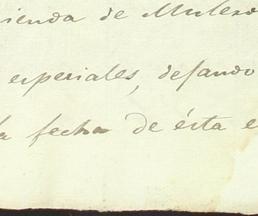 ienda de Mulero
especiales, dejando
la fecha de ésta e